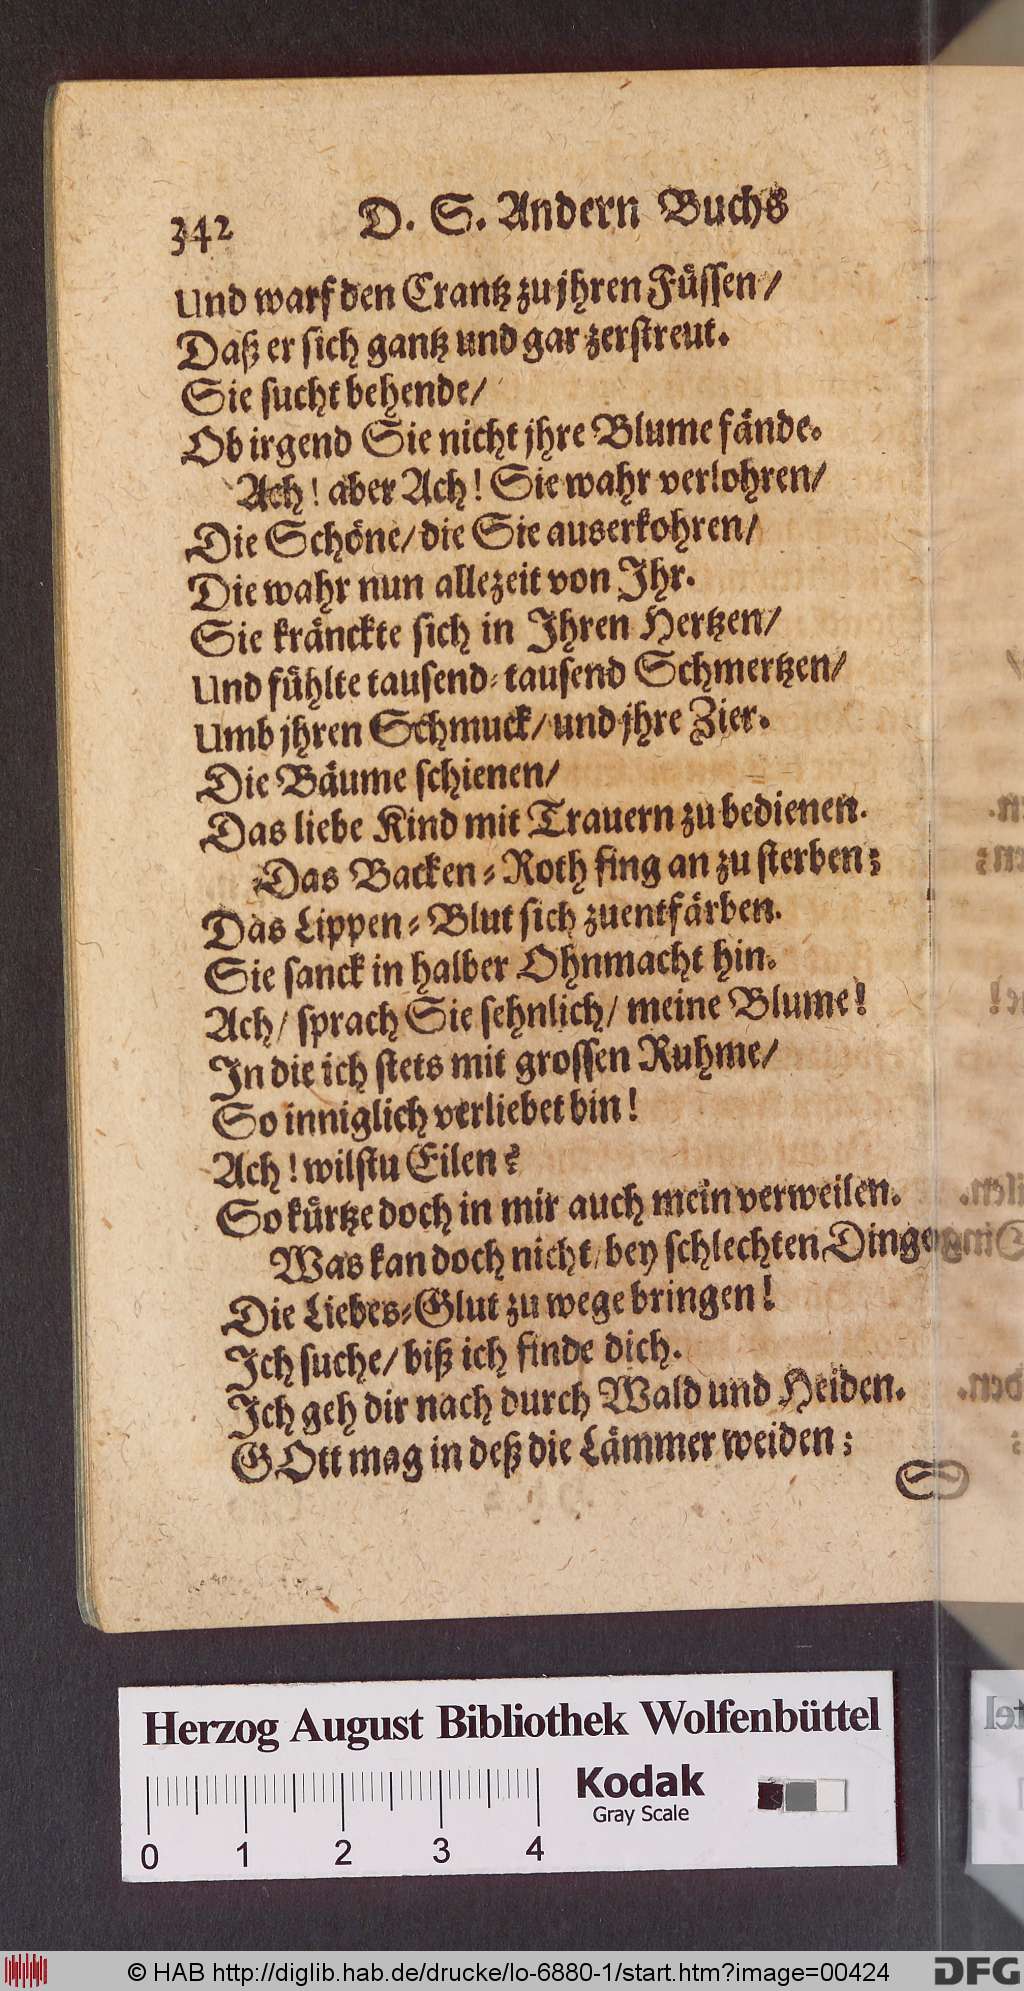 342 D. S. Andern Buchs
Und warf den Crantz zu jhren Füſſen/
Daß er ſich gantz und gar zerſtreut.
Sie ſucht behende/
Ob irgend Sie nicht jhre Blume fände.
Ach! aber Ach! Sie wahr verlohren/
Die Schöne/ die Sie auserkohren/
Die wahr nun allezeit von Ihr.
Sie kränckte ſich in Ihren Hertzen/
Und fühlte tauſend-tauſend Schmertzen/
Umb jhren Schmuck/ und jhre Zier.
Die Bäume ſchienen/
Das liebe Kind mit Trauern zu bedienen.
Das Backen-Roth fing an zu ſterben;
Das Lippen-Blut ſich zuentfärben.
Sie ſanck in halber Ohnmacht hin.
Ach/ ſprach Sie ſehnlich/ meine Blume!
In die ich ſtets mit groſſen Ruhme/
So inniglich verliebet bin!
Ach! wilſtu Eilen?
So kürtze doch in mir auch mein verweilen.
Was kan doch nicht/ bey ſchlechten Dinge
Die Liebes-Glut zu wege bringen!
Ich ſuche/ biß ich finde dich.
Ich geh dir nach durch Wald und Heiden.
GOtt mag in deß die Lämmer weiden;
So
Herzog August Bibliothek Wolfenbüttel
Kodak
Gray Scale
0 1 2 3 4
© HAB http://diglib.hab.de/drucke/lo-6880-1/start.htm?image=00424
DFG